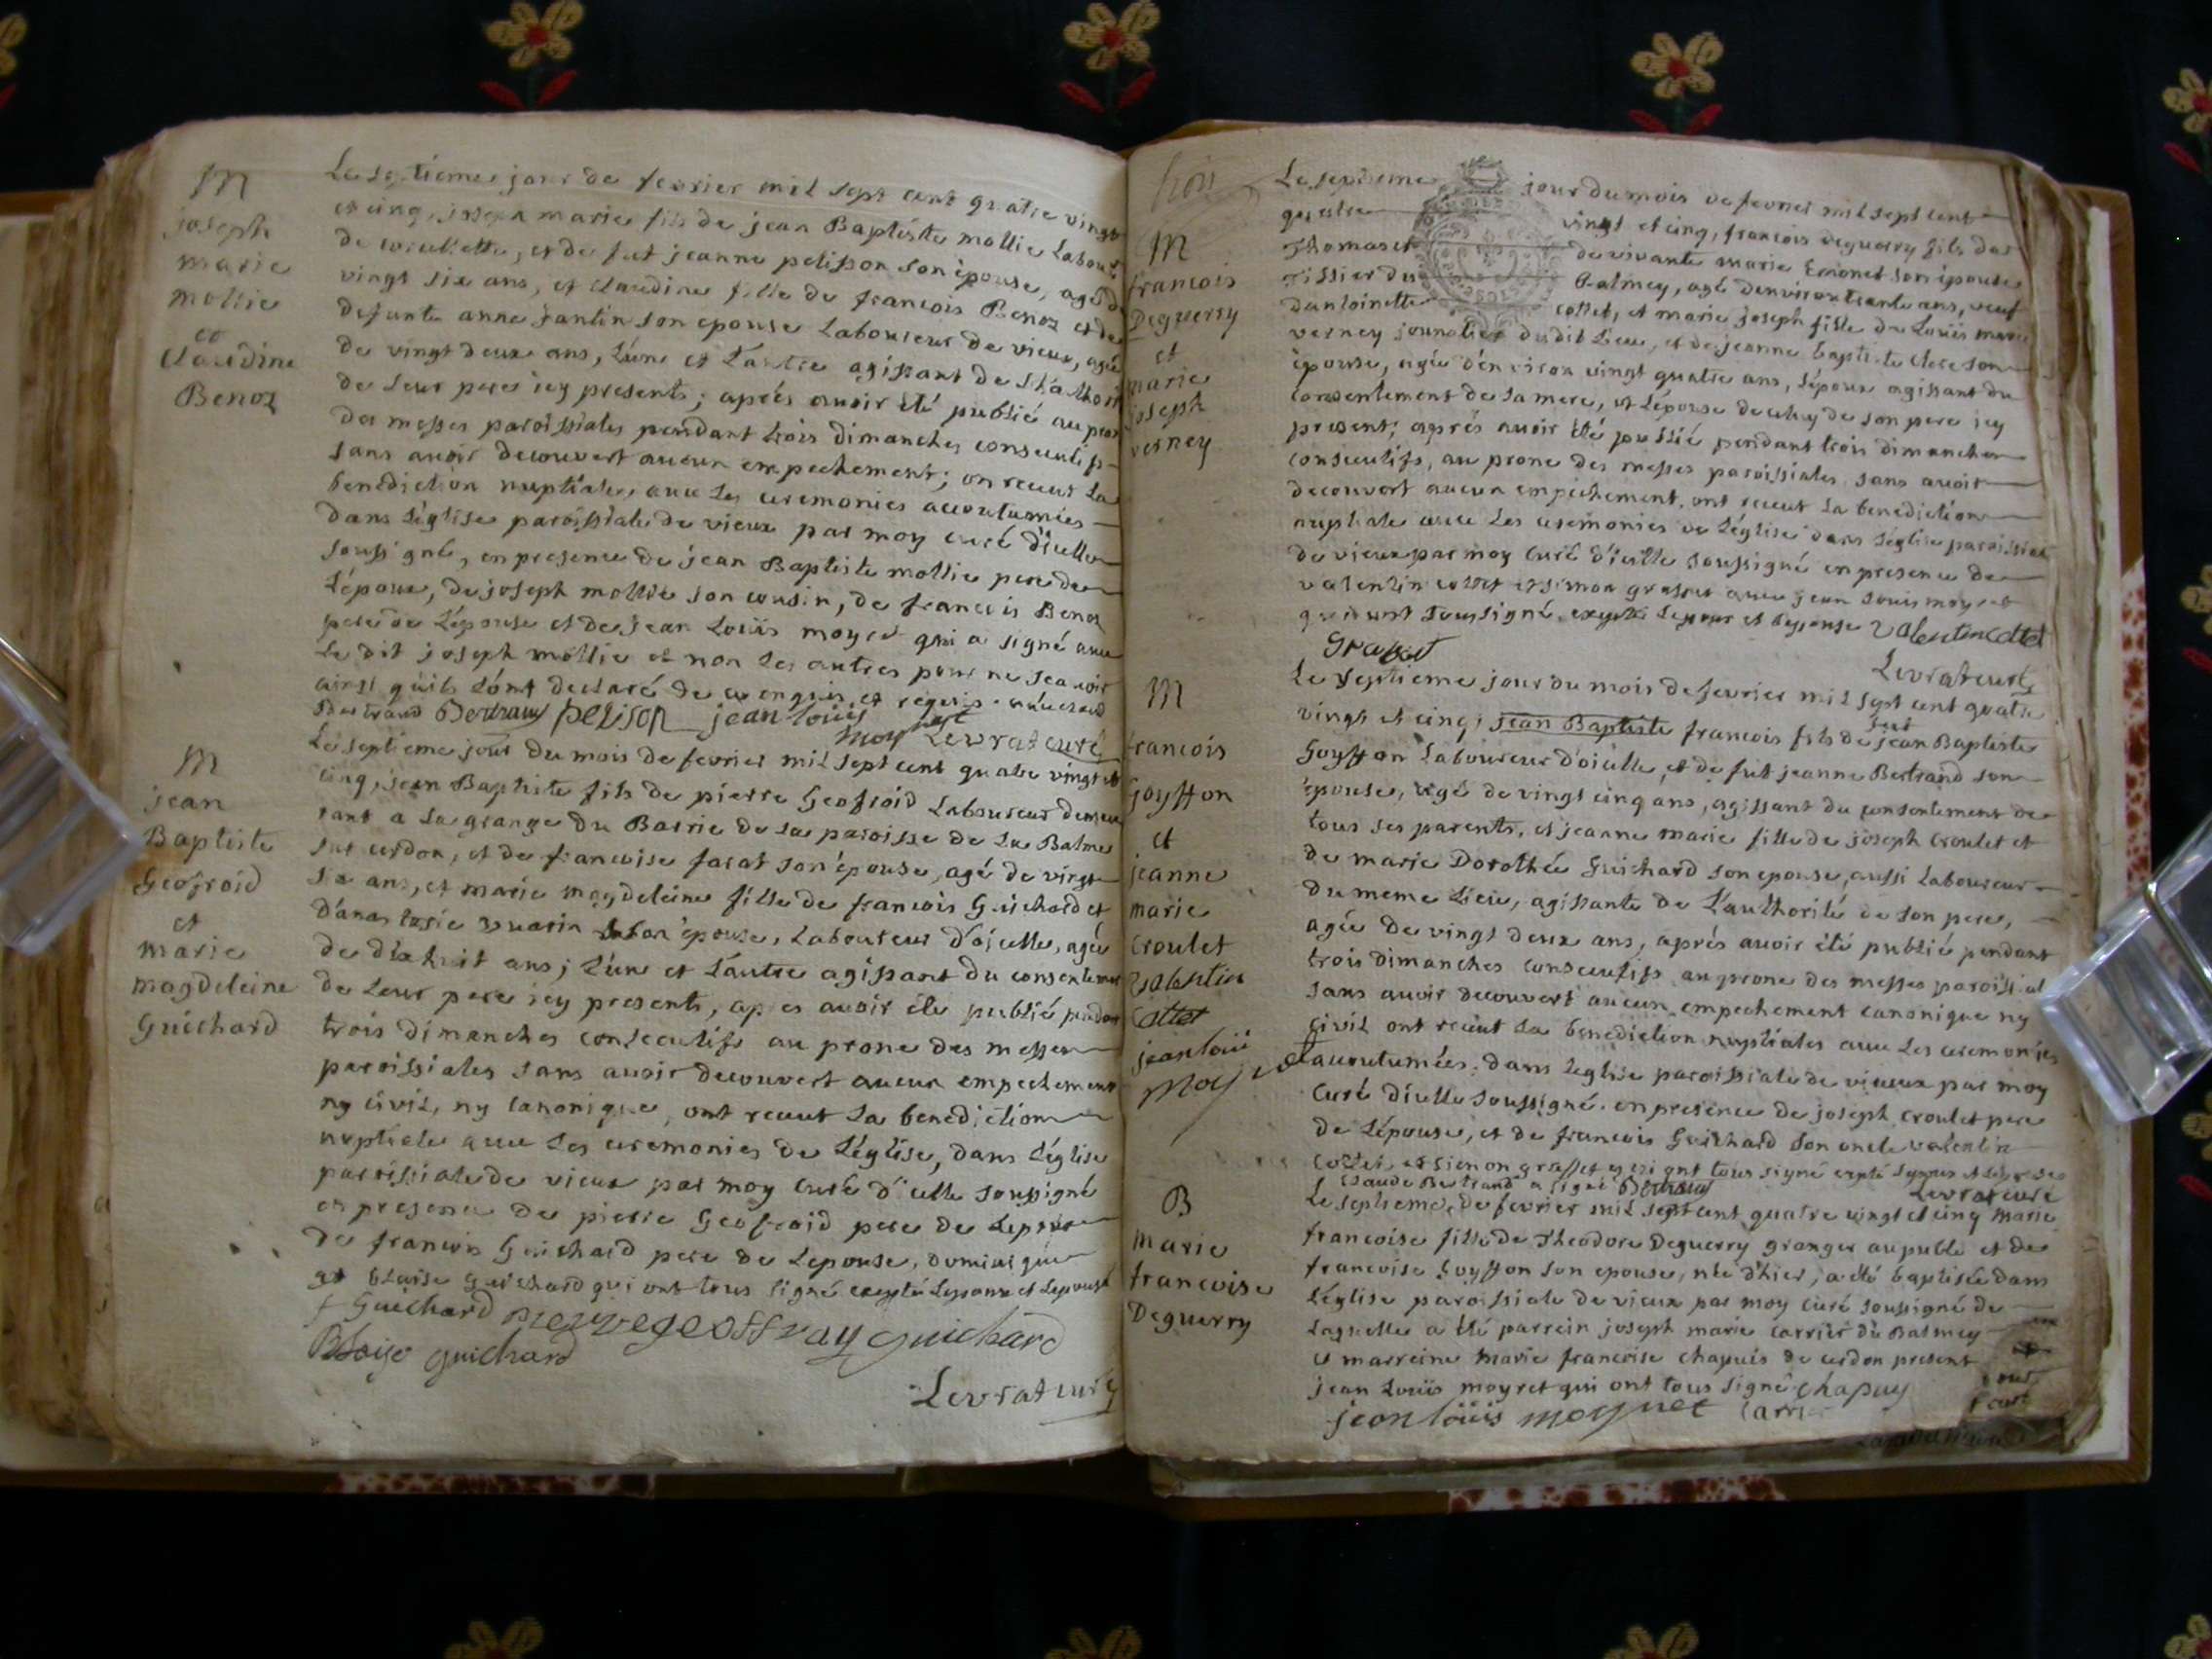 M
joseph
marie
mollie
et
Claudine
Benoz
Le septieme jour de fevrier mil sept cent quatre vingt
et cinq, joseph marie fils de jean Baptiste mollie Labour
de, et de fut jeanne pelisson son épouse, agé de
vingt six ans, et Claudine fille de francois Benoz et de
defunte anne jantin son epouse Laboureur de vieux, agée
de vingt deux ans, L'une et L'autre agissant de L'author
de Leur pere icy presents; aprés avoir été publié au pron
des messes paroissiales pendant trois dimanches consecutifs
sans avoir decouvert aucun empechement; on receut La
benediction nuptiale, avec Les ceremonies accoutumées
dans L'église paroissiale de vieux par moy curé d'icelle
soussigné, en presence de jean Baptiste mollie pere de
L'époux, de joseph mollie son cousin, de francois Benoz
pere de L'épouse et de jean Loüis moyret qui a signé avec
Le dit joseph mollie et non Les autres pour ne scavoir
ainsi qu'ils L'ont declaré de ce enquis et requis
Bertrand pelison jean loüis
moyret Levrat curé
M
jean
Baptiste
Geofroid
et
marie
magdeleine
Guichard
Le septieme jour du mois de fevrier mil sept cent quatre vingt et
cinq, jean Baptiste fils de pierre Geofroid Laboureur demeu
rant a La grange du Barrie de La paroisse de La Balme
sur cerdon, et de francoise farat son épouse, agé de vingt
six ans, et marie magdeleine fille de francois Guichard et
d'anastasie vuarin son épouse, Laboureur d'oicelle, agée
de dix huit ans; L'une et L'autre agissant du consentement
de Leur pere icy presents, apres avoir été publié pendant
trois dimanches consecutifs au prone des messes
paroissiales sans avoir decouvert aucun empechement
ny civil, ny canonique, ont receut La benediction
nuptiale avec Les ceremonies de L'église, dans L'église
paroissiale de vieux par moy curé d'icelle soussigné
en presence de pierre Geofroid pere de Lepoux
de francois Guichard pere de Lepouse, dominique
et blaise guichard qui ont tous signé excepté Lepoux et Lepouse
f Guichard pierre geoffray guichard
Blaise guichard
Levrat curé
trois
M
francois
Deguerry
et
marie
joseph
verney
Le septieme jour du mois de fevrier mil sept cent
quatre vingt et cinq, francois deguerry fils de
Thomas et de vivante marie Emonet son épouse
Tissier du Balmey, agé d'environ trente ans, veuf
d'antoinette cottet, et marie joseph fille de Loüis marie
verney journalier du dit Lieu, et de jeanne baptiste clerc son
épouse, agée d'environ vingt quatre ans, L'époux agissant du
consentement de sa mere, et L'épouse de celuy de son pere icy
present; aprés avoir été publié pendant trois dimanches
consecutifs, au prone des messes paroissiales sans avoir
decouvert aucun empechement, ont receut La benediction
nuptiale avec Les ceremonies de L'église dans L'église paroissiale
de vieux par moy curé d'icelle soussigné en presence de
valentin cottet et simon grasset avec jean Louis moyret
qui ont soussigné excepté Lepoux et Lepouse valentin cottet
Grasset
Levrat curé
M
francois
Goyffon
et
jeanne
marie
croulet
valentin
cottet
jean loüi
moyret
Le septieme jour du mois de fevrier mil sept cent quatre
vingt et cinq; jean Baptiste francois fils de feut jean Baptiste
Goyffon Laboureur d'oicelle, et de fut jeanne Bertrand son
épouse, agé de vingt cinq ans, agissant du consentement de
tous ses parents, et jeanne marie fille de joseph croulet et
de marie Dorothée Guichard son epouse, aussi Laboureur
du meme Lieu, agissante de L'authorité de son pere,
agée de vingt deux ans, aprés avoir été publié pendant
trois dimanches consecutifs au prone des messes paroissial
sans avoir decouvert aucun empechement canonique ny
civil ont receut La benediction nuptiales avec Les ceremonies
accoutumées, dans Leglise paroissiale de vieux par moy
curé d'icelle soussigné. en presence de joseph croulet pere
de L'épouse, et de francois Guichard son oncle valentin
cottet, et simon grasset qui ont tous signé excepté Lepoux et Lepouse
Claude Bertrand a signé Bertrand Levrat curé
B
marie
francoise
Deguerry
Le septieme de fevrier mil sept cent quatre vingt et cinq marie
francoise fille de Theodore Deguerry granger au puble et de
francoise Goyffon son epouse, née d'hier, a été baptisée dans
L'église paroissiale de vieux par moy curé soussigné de
Laquelle a été parrein joseph marie carrier du Balmey
et marreine marie francoise chapuis de cerdon present
jean Loüis moyret qui ont tous signé chapuy
jean loüis moyret carri